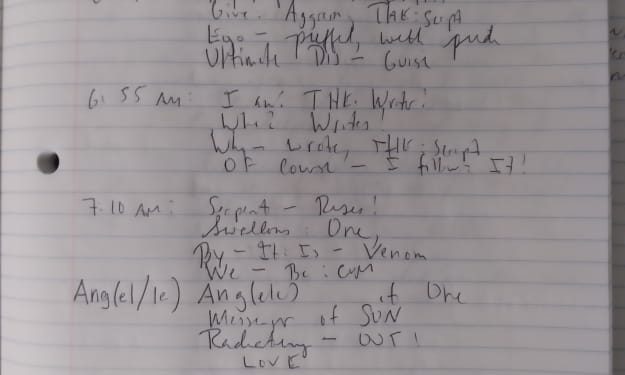 Give. Aggain, THE: Script
Ego - puffed, with
Ultimate Dis - Guise
6:55 AM: I am: THE. Writer!
Who? Writes!
Why - wrote, THE: Script
OF Course - I follow: It!
7:10 AM: Serpent - Rises!
Swallows: One,
By - It: Is - Venom
We - Be: Cum
Ang(el/le) Ang(ele) of One
Messenger of SUN
Radiating - OUT!
LOVE